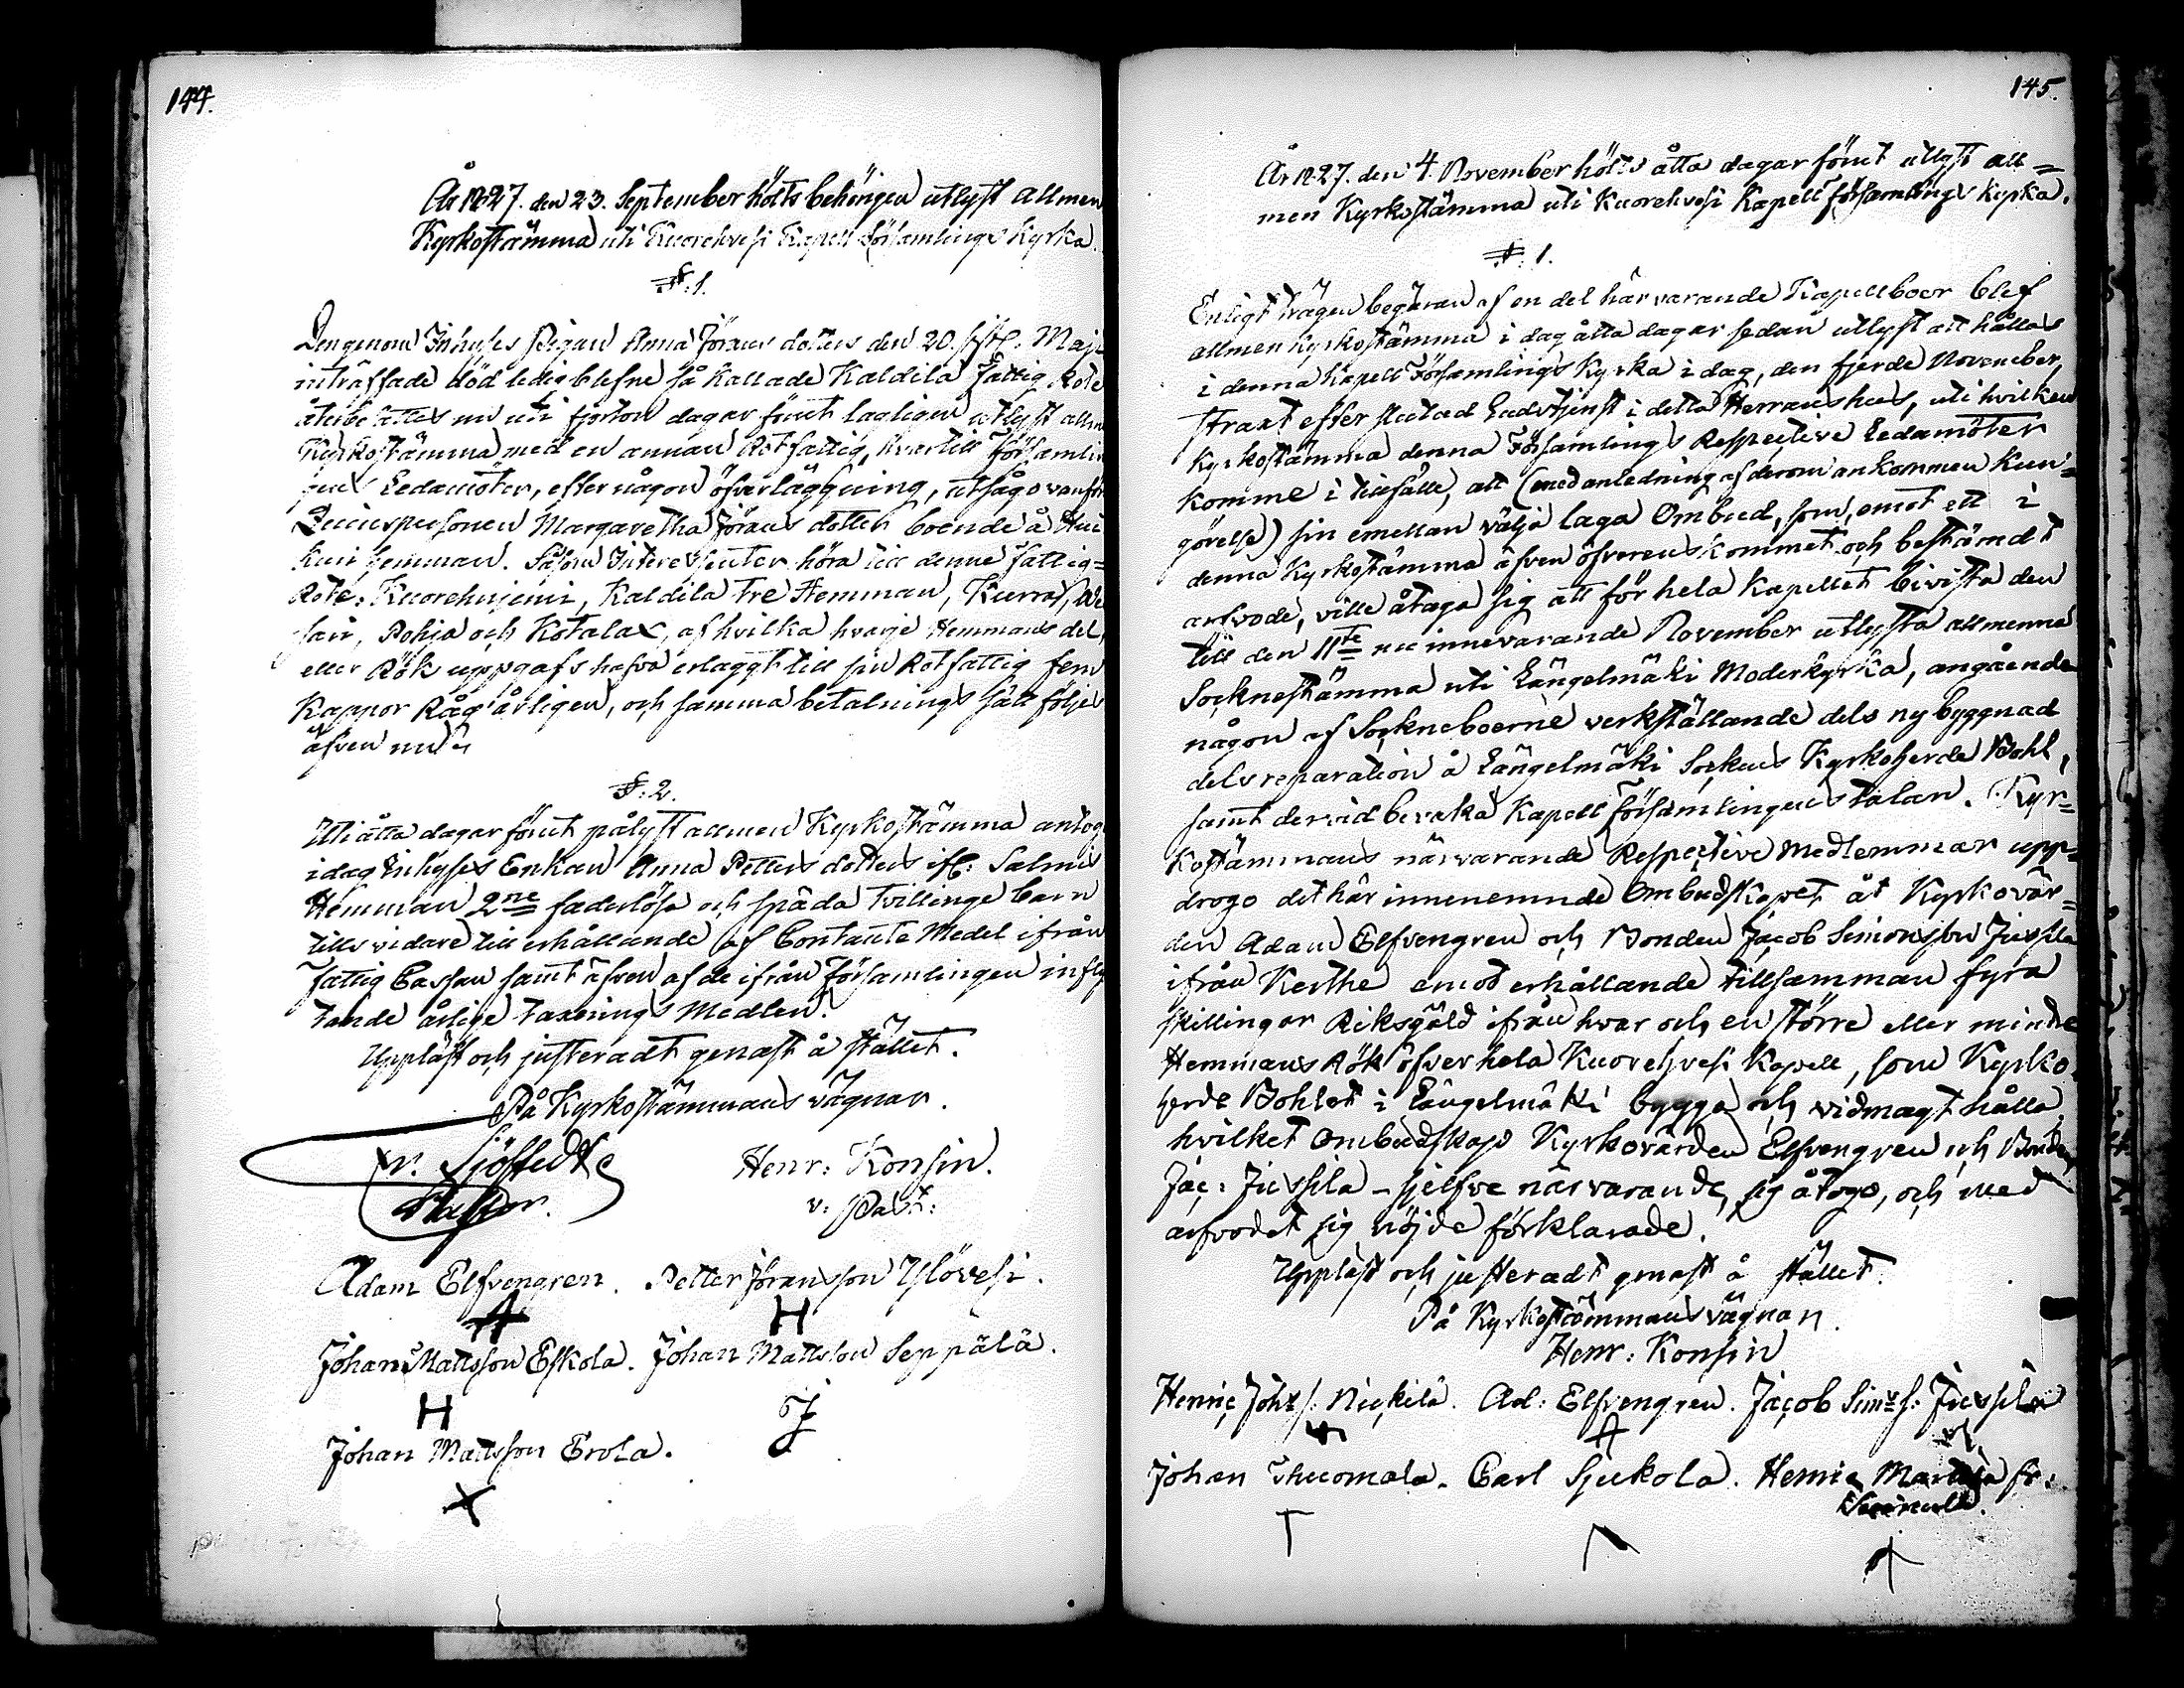 144.
År 1827. den 23. September hölts behörigen utlyst allmen
Kyrkostämma uti Kuorehvesi Kapell Församlings Kyrka.
§. 1.
Den genom Inhyses Pigan Anna Jörans dotters den 20. sistl. Maji
inträffade död ledig blefne så kallade Kaldila Fattig Rote
återbesattes nu uti fjorton dagar förut lagligen utlyst allmen
Kyrkostämma med en annan Rotfattig, hvartill Församlin
gens Ledamöter, efter någon öfverläggning, utsågo vanföra
Qvinspersonen Margaretha Jörans dotter boende å
hemman. Såsom Interessenter höra till denne fattig=
Rote: Kuorehujemi, Kaldila tre Hemman, Kurra,
Pohja och Kotala, af hvilka hvarje Hemmans del,
eller Rök uppgafs hafva erlaggt till sin Rotfattig fem
Kappor Råg årligen, och samma betalnings sätt följes
äfven nu.
§. 2.
Uti åtta dagar förut pålyst allmen Kyrkostämma antogs
i dag Inhyses Enkan Anna Petters dotters ifr: Salmis
Hemman 2ne faderlösa och späda tvillinge barn
tills vidare till erhållande af Contante Medel ifrån
Fattig Cassan samt äfven af de ifrån församlingen infly
tande årlige taxerings Medlen.
Uppläst och justeradt genast å stället.
På Kyrkostämmans vägnar.
Sjöstedt
Pastor.
Henr: Konsin.
v: Past:
Adam Elfvengren. Petter Jöransson Ylövesi.
A H
Johan Mattsson Eskola. Johan Mattsson Seppälä.
H J
Johan Mattsson Erola.
X
145.
År 1827. den 4. November hölts åtta dagar förut utlyst all=
men Kyrkostämma uti Kuorehvesi Kapell församlings kyrka.
§. 1.
Enligt trägen begäran af en del härvarande Kapellboer blef
allmen Kyrkostämma i dag åtta dagar sedan utlyst att hållas
i denna Kapell Församlings Kyrka i dag, den fjerde November,
straxt efter slutad Gudstjenst i detta Herrans hus, uti hvilken
Kyrkostämma denna Församlings Respective Ledamöter
komme i tillfälle, att (med anledning af derom ankommen Kun=
görelse) sin emellan välja laga Ombud, som, emot ett i
denna Kyrkostämma äfven öfverenskommet och bestämdt
arfvode, ville åtaga sig att för hela Kapellet bivista den
till den 11te nu innevarande November utlysta allmenna
Socknestämma uti Längelmäki Moderkyrka, angående
någon af Sockneboerne verkställande dels ny byggnad
dels reparation å Längelmäki Sockens Kyrkoherde Bohl,
samt dervid bevaka Kapell Församlingens talan. Kyr=
kostämmans närvarande Respective Medlemmar upp=
drogo det här innenemnde Ombudskapet åt Kyrkovär=
den Adam Elfvengren och Bonden Jacob Simonsson Jussila
ifrån Kerthe emot erhållande tillsamman fyra
skillingar Riksgäld ifrån hvar och en större eller mindre
Hemmans Rök öfver hela Kuorehvesi Kapell, som Kyrko
herde Bohlet i Längelmäki bygga och vidmagt hålla,
hvilket Ombudskap Kyrkovärden Elfvengren och Bonden
Jac: Jussila - sjelfve närvarande, sig åtogo, och med
arfvodet sig nöjde förklarade.
Uppläst och justeradt genast å stället.
På Kyrkostämmans vägnar.
Henr: Konsin
Henric Johs s: Nickilä. Ad: Elfvengren. Jacob Sims s: Jussila
A
Johan Thuomala. Carl Sjukola. Henric Marttila fr: